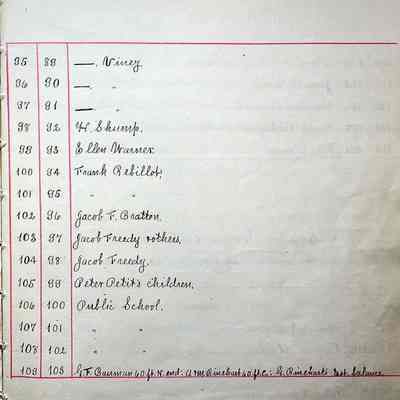 95 89 —. Viney
96 90 —. "
97 91 —. "
98 92 H. Shump.
99 93 Ellen Warner
100 94 Frank Rebillot,
101 95 " "
102 96 Jacob F. Bratton.
103 97 Jacob Freedy & others,
104 98 Jacob Freedy.
105 99 Peter Petit's children,
106 100 Public School.
107 101 " "
108 102 " "
109 103 G. F. 40 ft. N. end: Rinehart 40 ft. C.: G. Rinehart's balance